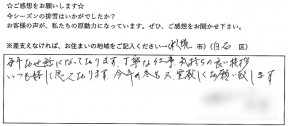 ☆ご感想をお願いします☆
今シーズンの排雪はいかがでしたか？
お客様の声が、私たちの原動力になっています。ぜひ、ご感想をお聞かせ下さい。
※差支えなければ、お住まいの地域をご記入ください→(札幌 市)(白石 区)
毎年お世話になっております。丁寧な仕事、気持ちの良い挨拶
いつも嬉しく思っております。今年の冬も又宜敷くお願い致します